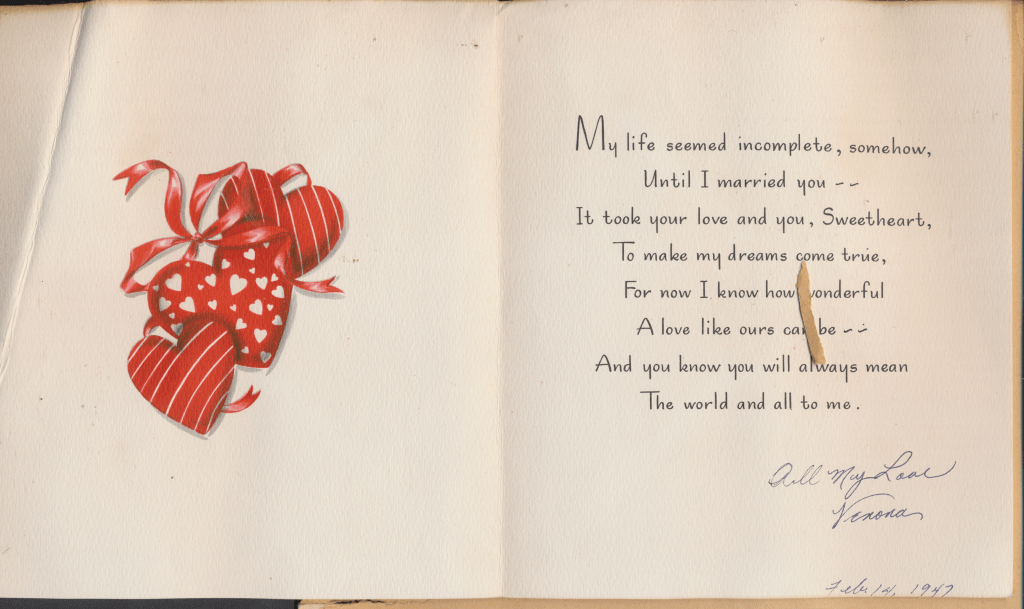 My life seemed incomplete, somehow,
Until I married you --
It took your love and you, Sweetheart,
To make my dreams come true,
For now I know how wonderful
A love like ours can be --
And you know you will always mean
The world and all to me.
All My Love
Venona
Feb. 14, 1947